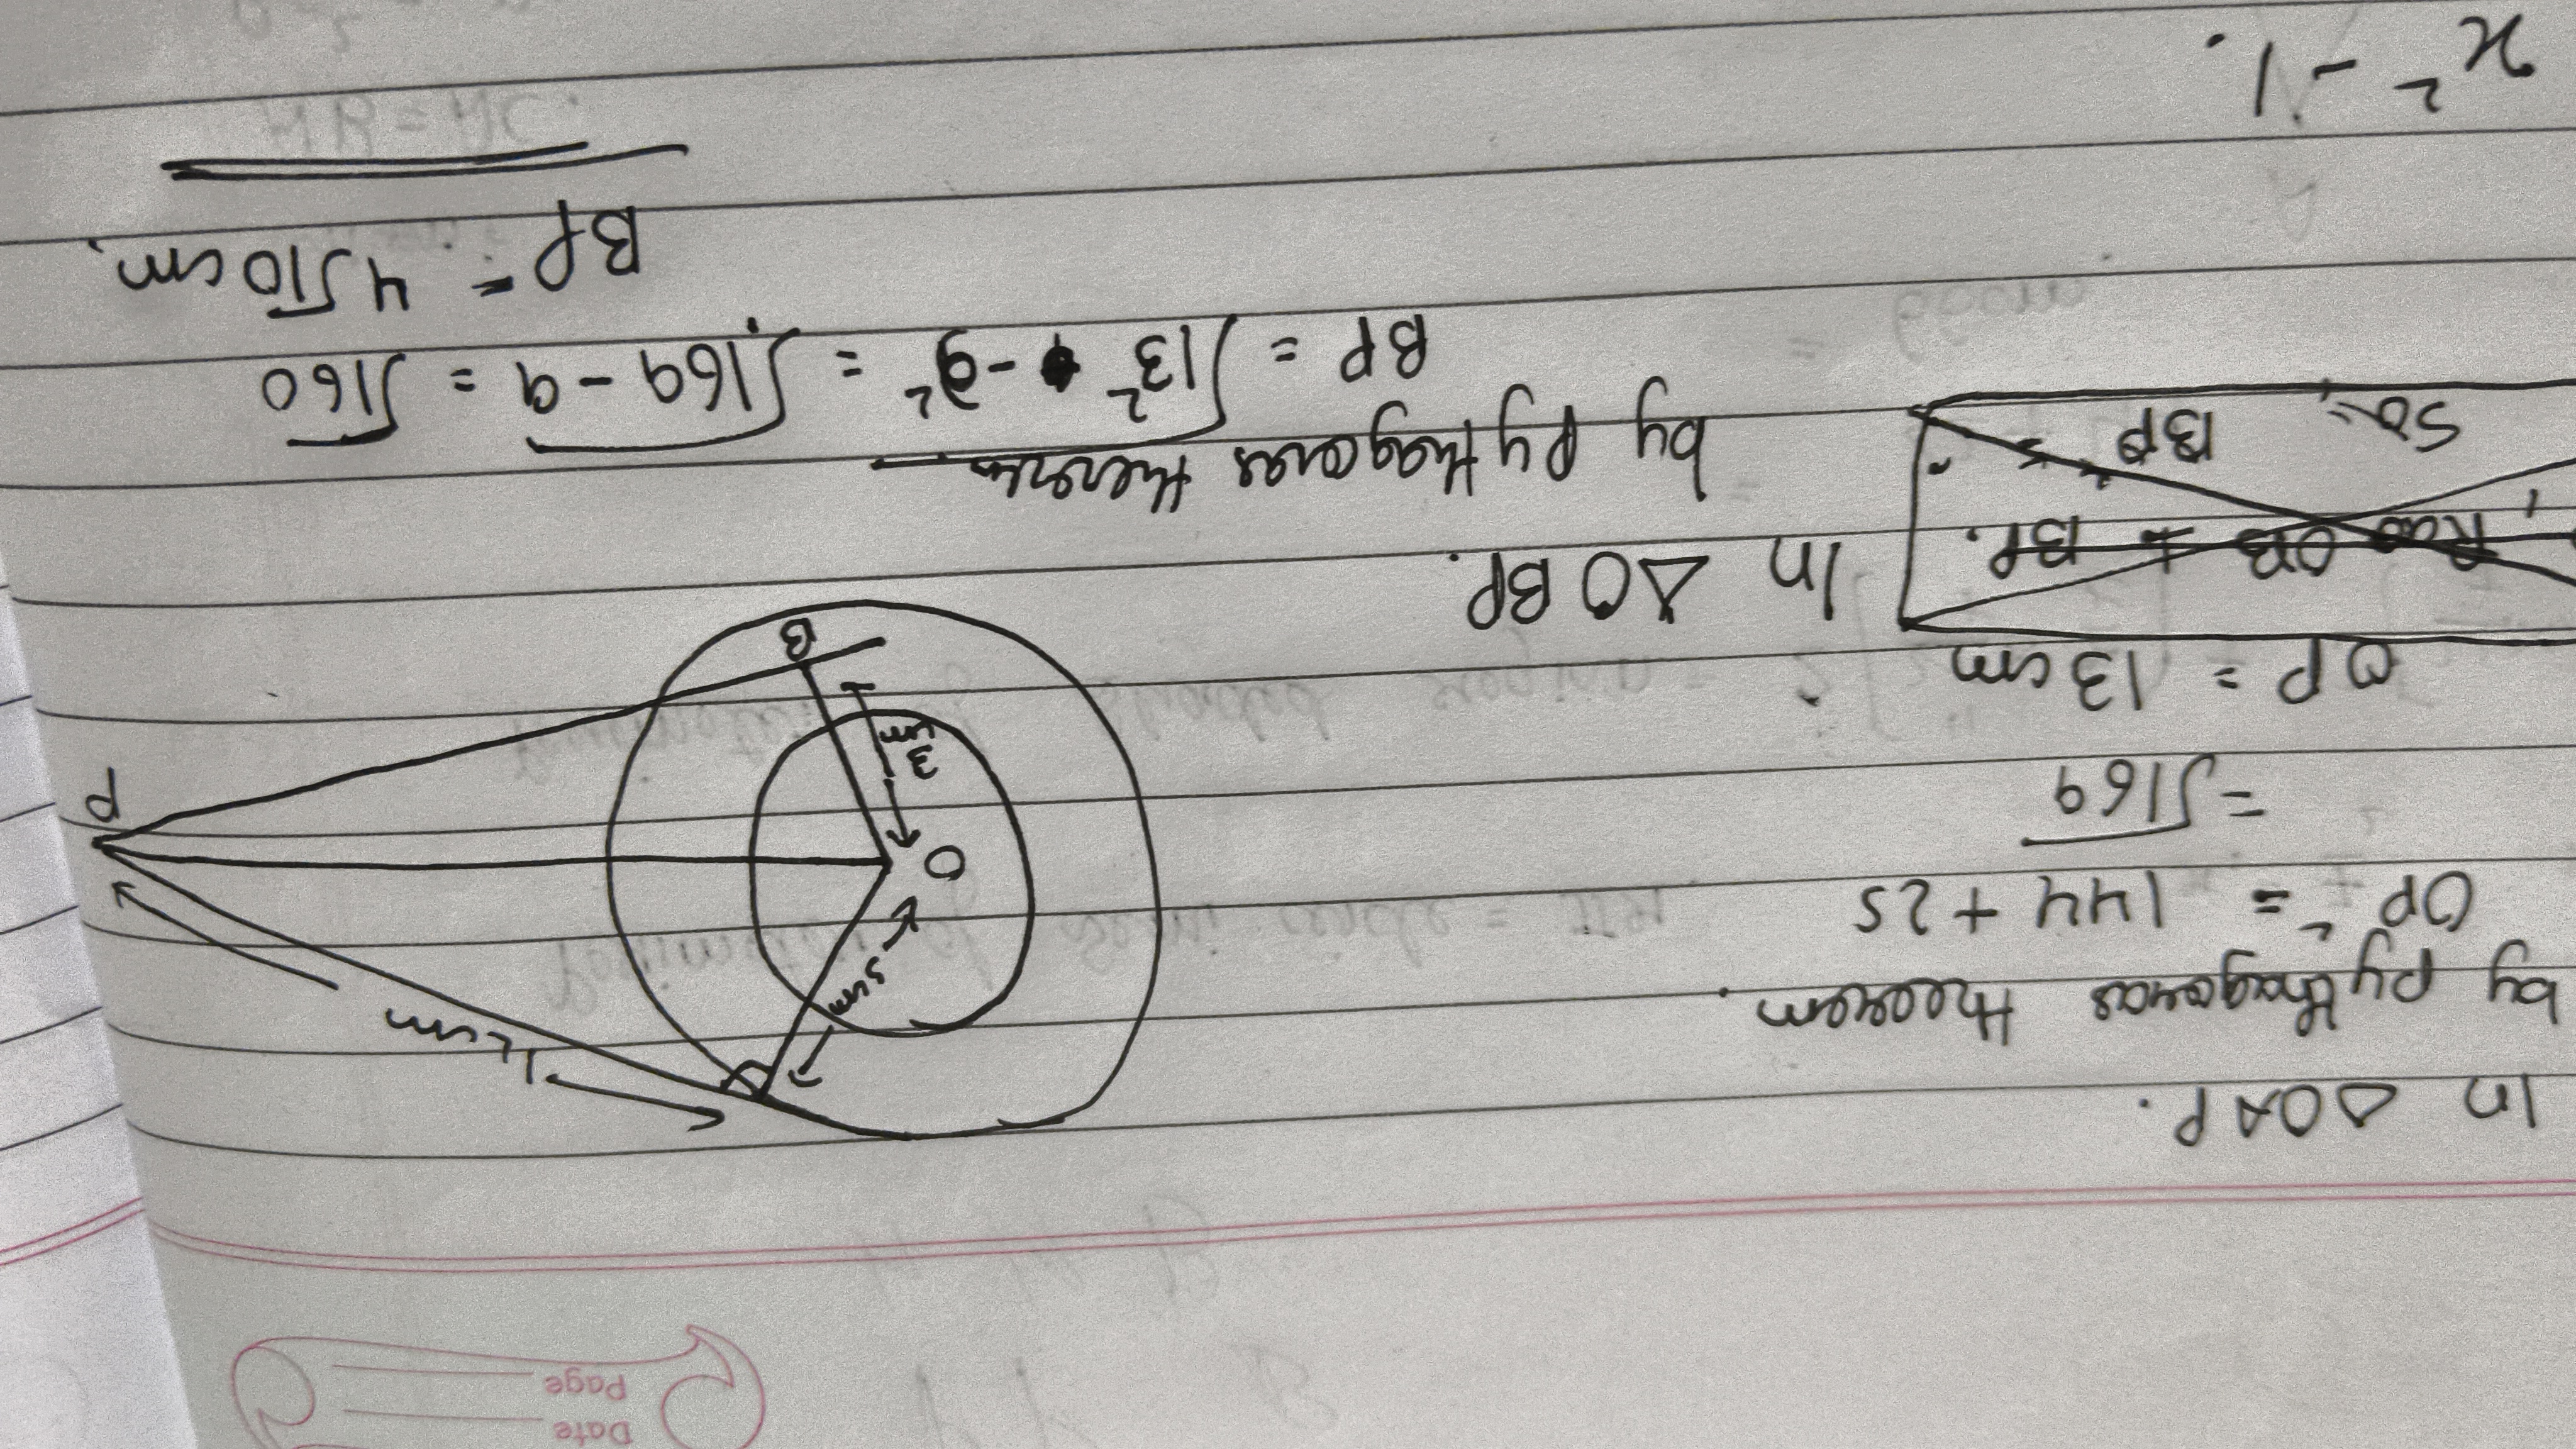 Date
Page
In ΔOAP.
by pythagoras theorem.
OP² = 144 + 25
= √169
OP = 13 cm
12 cm
5 cm
O
3 cm
P
B
OB BP.
So, BP =
In ΔOBP.
by pythagoras
BP = √13² - 3² = √169 - 9 = √160
BP = 4√10 cm.
x² - 1.